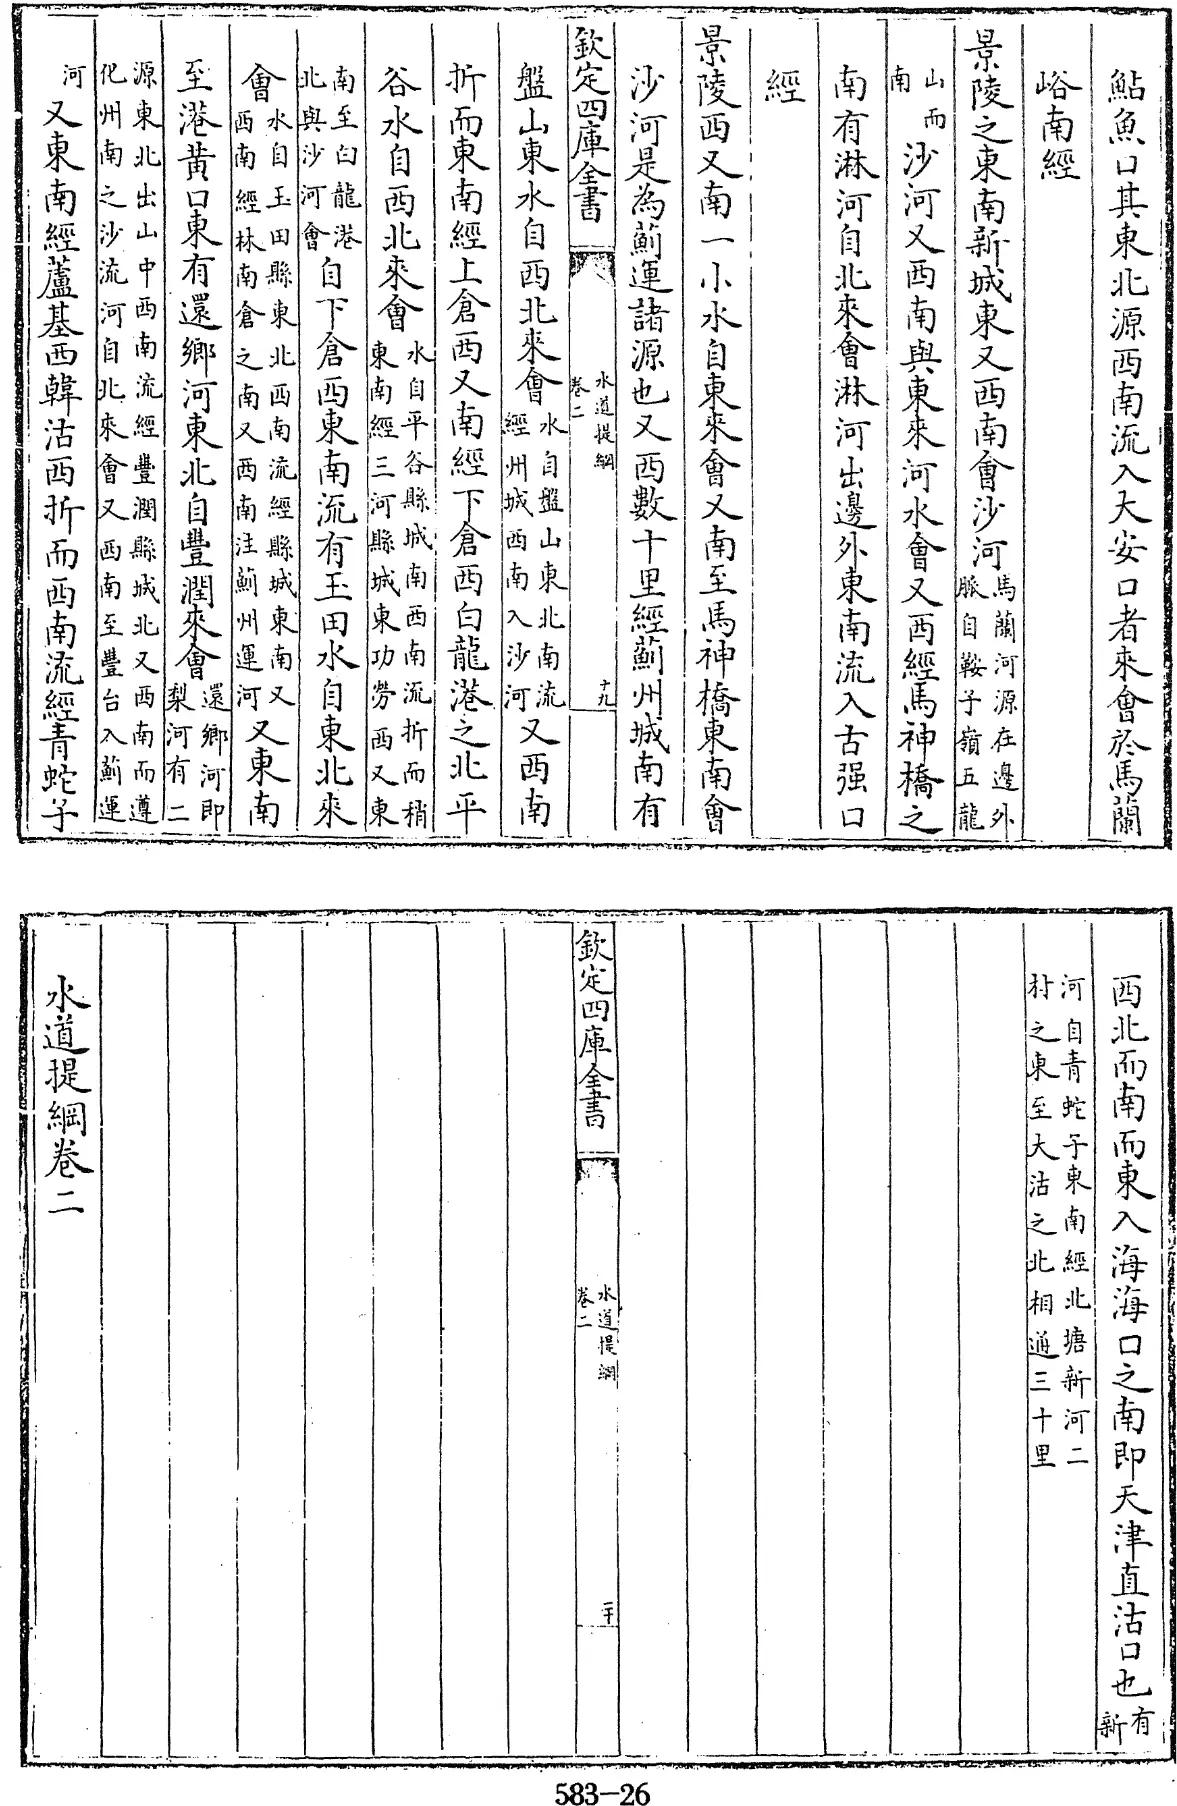 鮎魚口其東北源西南流入大安口者來會於馬蘭
峪南經
景陵之東南新城東又西南會沙河馬蘭河源在邊外脈自鞍子嶺五龍
山而南沙河又西南與東來河水會又西經馬神橋之
南有淋河自北來會淋河出邊外東南流入古强口
經
景陵西又南一小水自東來會又南至馬神橋東南會
沙河是為薊運諸源也又西數十里經薊州城南有
欽定四庫全書
水道提綱
卷二
十九
盤山東水自西北來會水自盤山東北南流經州城西南入沙河又西南
折而東南經上倉西又南經下倉西白龍港之北平
谷水自西北來會水自平谷縣城南西南流折而稍東南經三河縣城東功勞西又東
南至白龍港北與沙河會自下倉西東南流有玉田水自東北來
會水自玉田縣東北西南流經縣城東南又西南經林南倉之南又西南注薊州運河又東南
至港黄口東有還鄉河東北自豐潤來會還鄉河即梨河有二
源東北出山中西南流經豐潤縣城北又西南而遵化州南之沙流河自北來會又西南至豐台入薊運
河又東南經蘆基西韓沽西折而西南流經青蛇子
西北而南而東入海海口之南即天津直沽口也有新
河自青蛇子東南經北塘新河二村之東至大沽之北相通三十里
欽定四庫全書
水道提綱
卷二
二十
水道提綱卷二
583-26